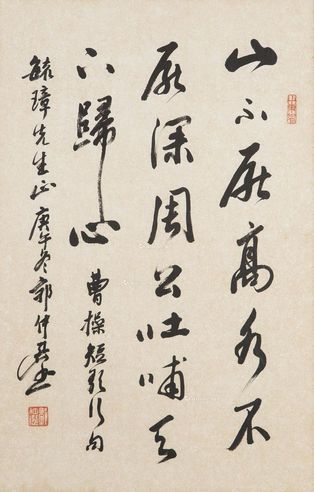 山不厭高水不
厭深周公吐哺天
下歸心 曹操短歌行句
毓璋先生正庚午冬郭仲選